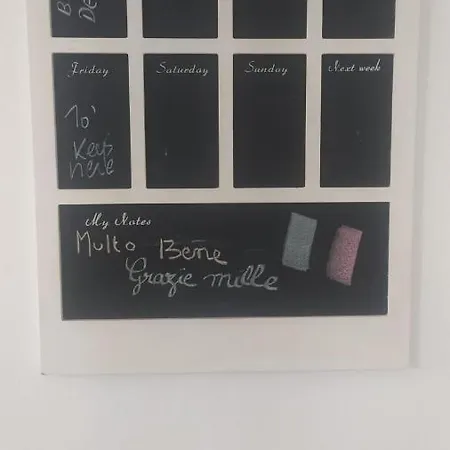 B
De
Friday
Saturday
Sunday
Next week
To'
Keep
here
My Notes
Multo Bene
Grazie mille